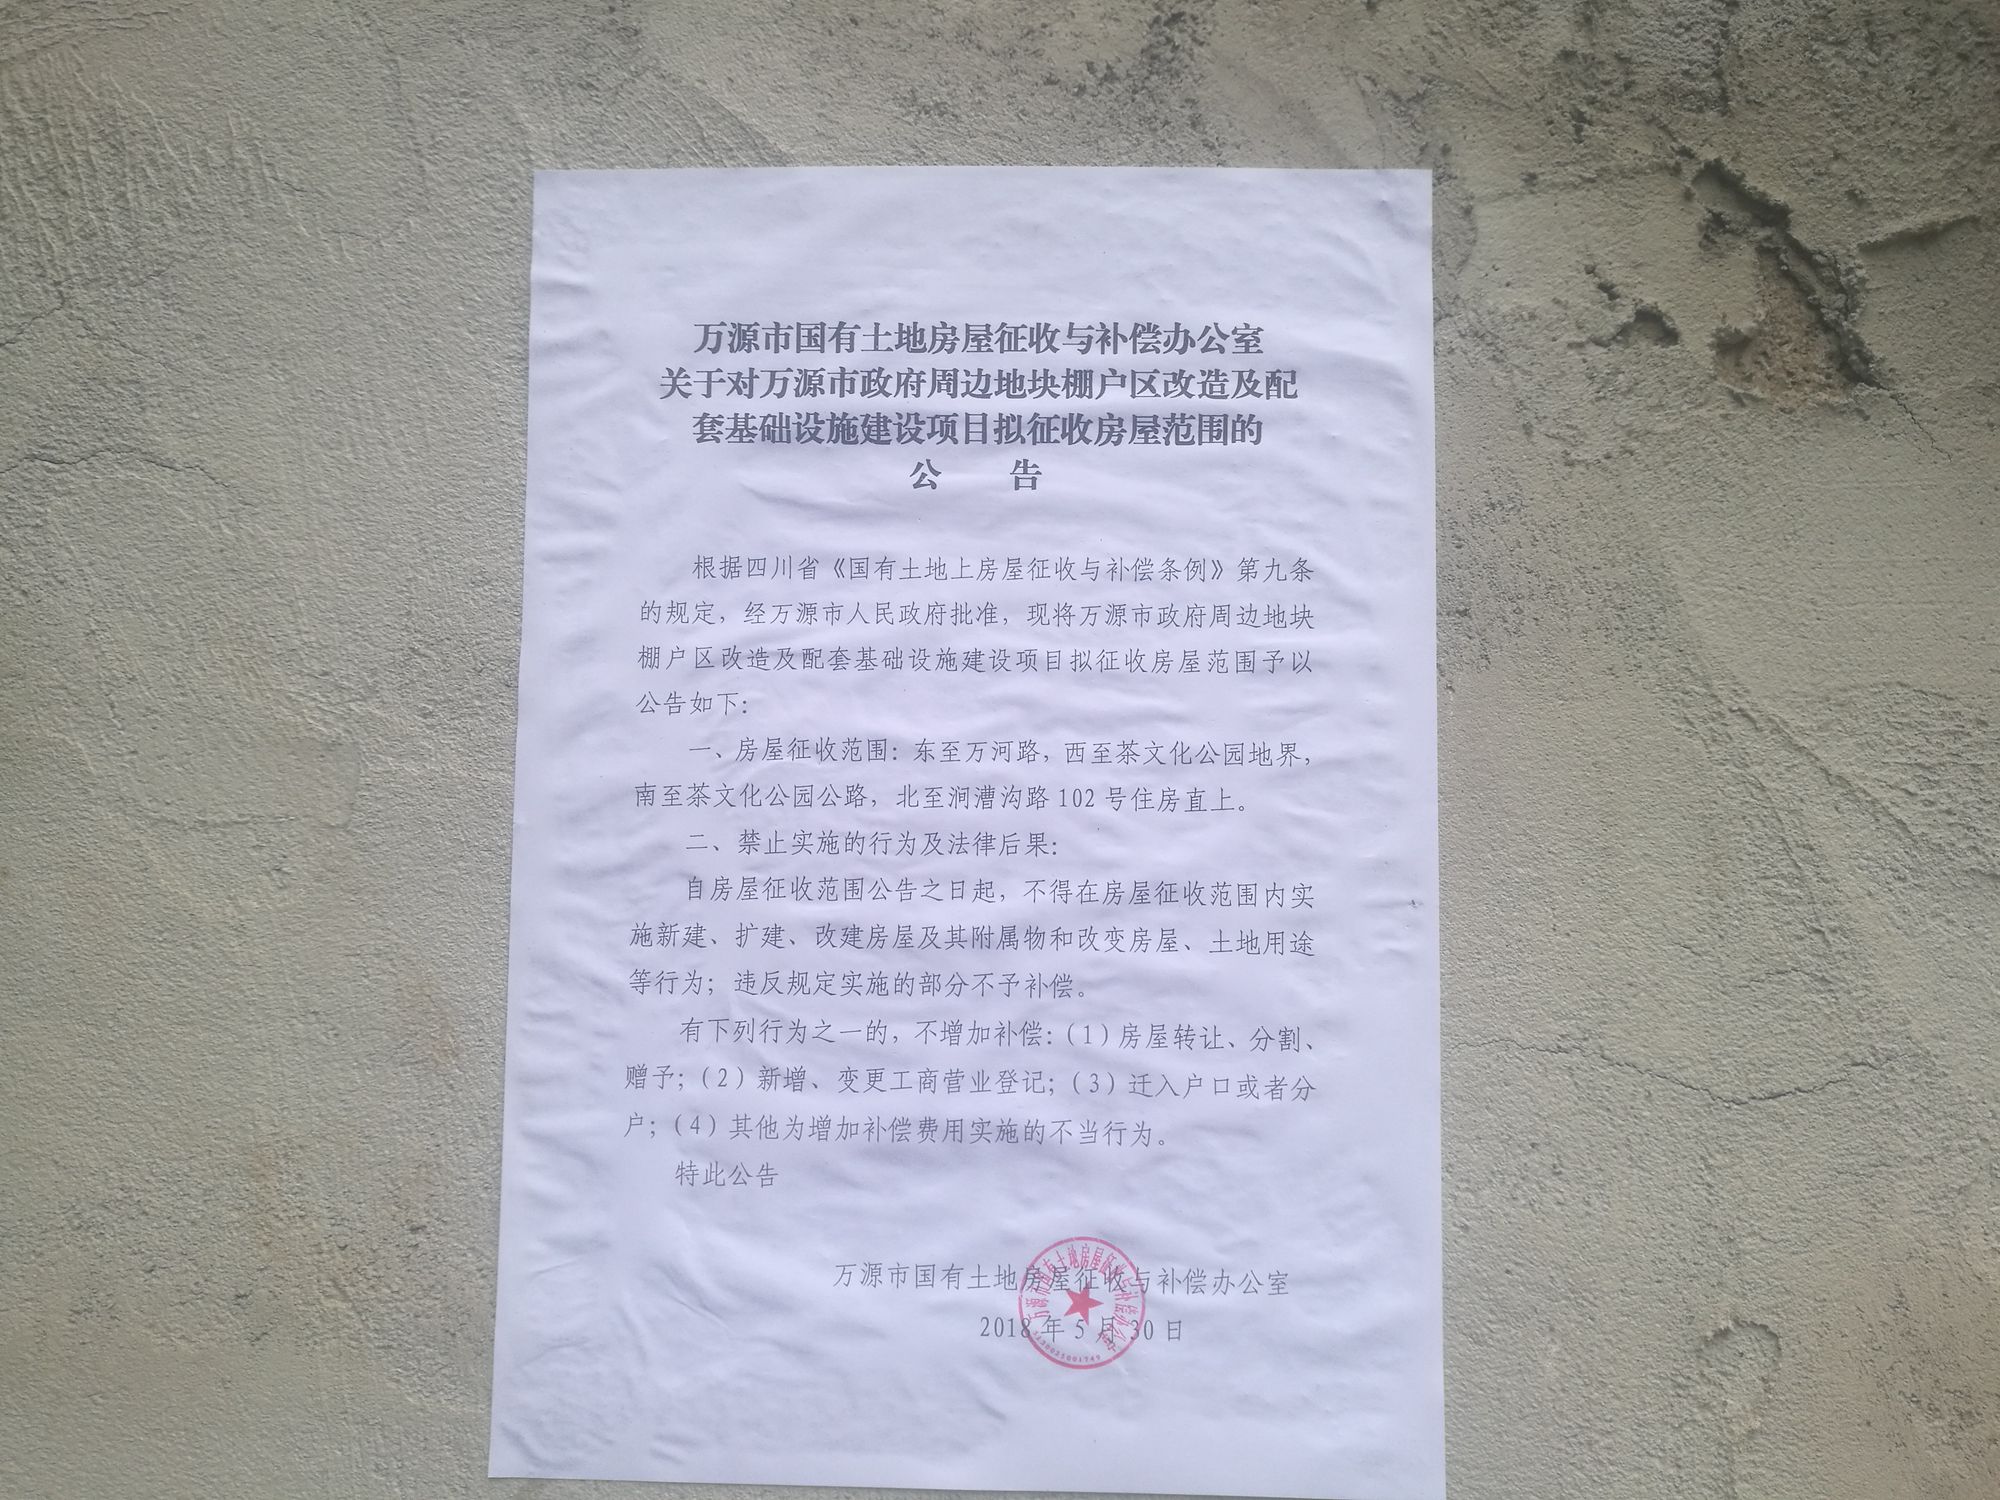 万源市国有土地房屋征收与补偿办公室
关于对万源市政府周边地块棚户区改造及配
套基础设施建设项目拟征收房屋范围的
公 告
根据四川省《国有土地上房屋征收与补偿条例》第九条
的规定，经万源市人民政府批准，现将万源市政府周边地块
棚户区改造及配套基础设施建设项目拟征收房屋范围予以
公告如下：
一、房屋征收范围：东至万河路，西至茶文化公园地界，
南至茶文化公园公路，北至涧漕沟路 102 号住房直上。
二、禁止实施的行为及法律后果：
自房屋征收范围公告之日起，不得在房屋征收范围内实
施新建、扩建、改建房屋及其附属物和改变房屋、土地用途
等行为；违反规定实施的部分不予补偿。
有下列行为之一的，不增加补偿：（1）房屋转让、分割、
赠予；（2）新增、变更工商营业登记；（3）迁入户口或者分
户；（4）其他为增加补偿费用实施的不当行为。
特此公告
万源市国有土地房屋征收与补偿办公室
2018 年 5 月 30 日
万源市国有土地房屋征收与补偿办公室